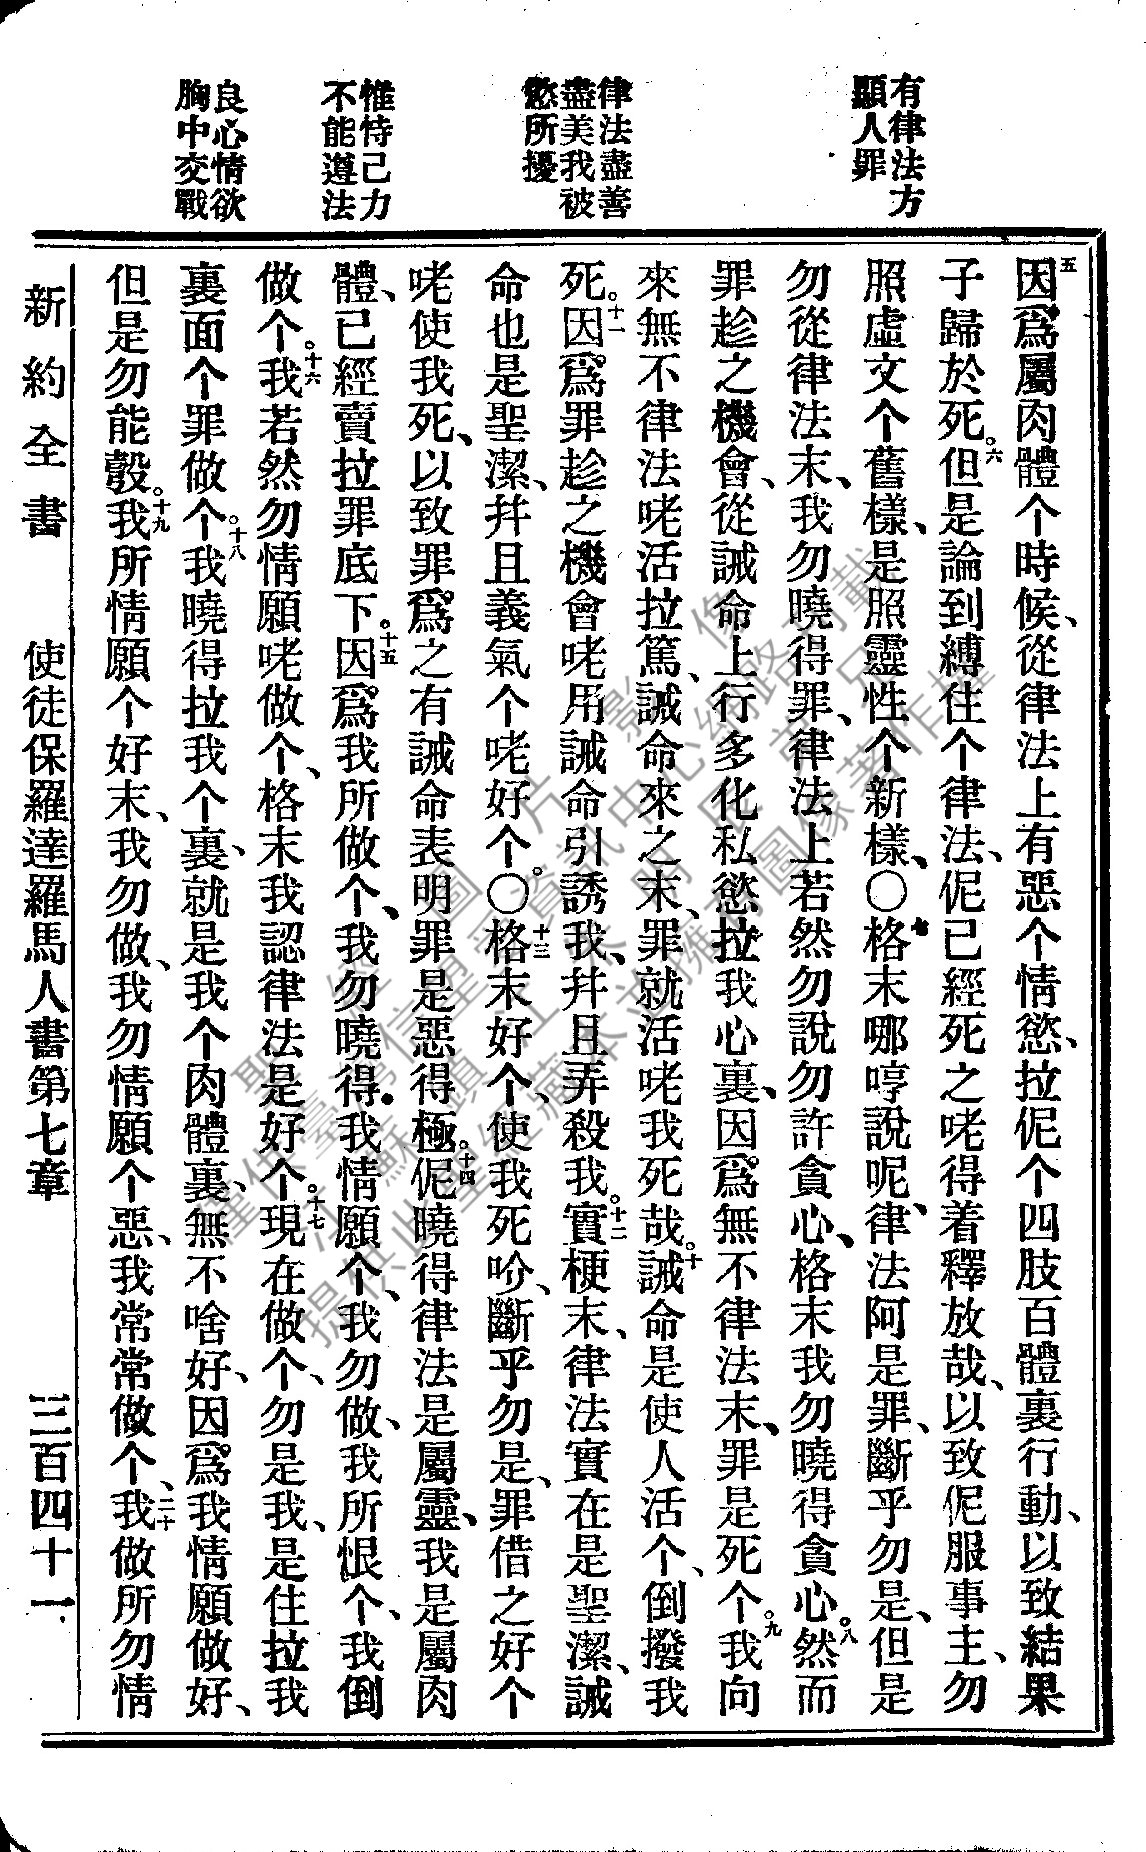 有律法方
顯人罪
律法盡善
盡美我被
慾所擾
惟恃己力
不能遵法
良心情欲
胸中交戰
五因爲屬肉體个時候、從律法上有惡个情慾、拉伲个四肢百體裏行動、以致結果
子歸於死。六但是論到縛住个律法、伲已經死之咾得着釋放哉、以致伲服事主、勿
照虛文个舊樣、是照靈性个新樣、〇七格末哪哼說呢、律法阿是罪、斷乎勿是、但是
勿從律法末、我勿曉得罪、律法上若然勿說勿許貪心、格末我勿曉得貪心。八然而
罪趁之機會、從誡命上行多化私慾拉我心裏、因爲無不律法末、罪是死个。九我向
來無不律法咾活拉篤、誡命來之末、罪就活咾我死哉。十誡命是使人活个、倒撥我
死。十一因爲罪趁之機會咾用誡命引誘我、幷且弄殺我。十二實梗末、律法實在是聖潔、誡
命也是聖潔、幷且義氣个咾好个。〇十三格末好个、使我死吤、斷乎勿是、罪借之好个
咾使我死、以致罪爲之有誡命表明罪是惡得極。十四伲曉得律法是屬靈、我是屬肉
體、已經賣拉罪底下。十五因爲我所做个、我勿曉得。我情願个、我勿做、我所恨个、我倒
做个。十六我若然勿情願咾做个、格末我認律法是好个。十七現在做个、勿是我、是住拉我
裏面个罪做个。十八我曉得拉我个裏、就是我个肉體裏、無不啥好、因爲我情願做好、
但是勿能彀。十九我所情願个好末、我勿做、我勿情願个惡、我常常做个、二十我做所勿情
新約全書　使徒保羅達羅馬人書第七章　三百四十一